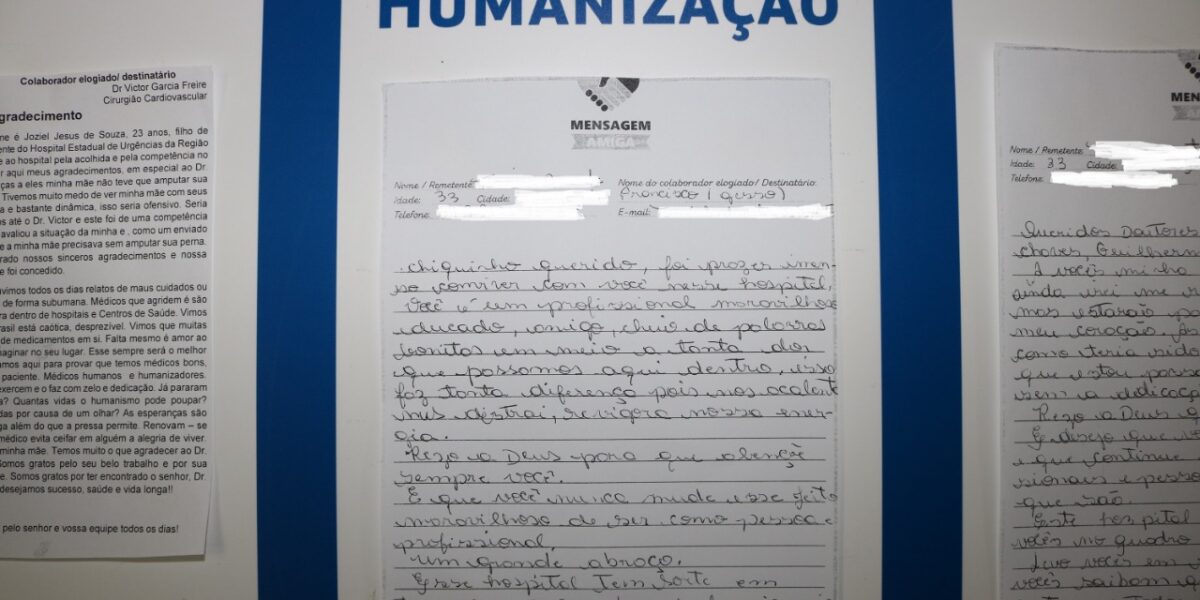 HUMANIZAÇÃO
Colaborador elogiado/ destinatário
Dr Victor Garcia Freire
Cirurgião Cardiovascular
gradecimento
me é Joziel Jesus de Souza, 23 anos, filho de
ente do Hospital Estadual de Urgências da Região
e ao hospital pela acolhida e pela competência no
r aqui meus agradecimentos, em especial ao Dr.
ças a eles minha mãe não teve que amputar sua
Tivemos muito medo de ver minha mãe com seus
a e bastante dinâmica, isso seria ofensivo. Seria
os até o Dr. Victor e este foi de uma competência
avaliou a situação da minha e , como um enviado
e a minha mãe precisava sem amputar sua perna.
rado nossos sinceros agradecimentos e nossa
e foi concedido.
uvimos todos os dias relatos de maus cuidados ou
de forma subumana. Médicos que agridem é são
ra dentro de hospitais e Centros de Saúde. Vimos
rasil está caótica, desprezível. Vimos que muitas
de medicamentos em si. Falta mesmo é amor ao
maginar no seu lugar. Esse sempre será o melhor
amos aqui para provar que temos médicos bons,
paciente. Médicos humanos e humanizadores.
exercem e o faz com zelo e dedicação. Já pararam
a? Quantas vidas o humanismo pode poupar?
das por causa de um olhar? As esperanças são
ga além do que a pressa permite. Renovam – se
médico evita ceifar em alguém a alegria de viver.
minha mãe. Temos muito o que agradecer ao Dr.
Somos gratos pelo seu belo trabalho e por sua
e. Somos gratos por ter encontrado o senhor, Dr.
desejamos sucesso, saúde e vida longa!!
pelo senhor e vossa equipe todos os dias!
MENSAGEM
AMIGA
Nome / Remetente:
Nome do colaborador elogiado/ Destinatário:
Idade: 33 Cidade:
Francisco (gesso)
Telefone:
E-mail:
Chiquinho querido, foi prazer imen-
so conviver com você nesse hospital,
você é um profissional maravilhoso
educado, amigo, cheio de palavras
bonitas em meio a tanta dor
que passamos aqui dentro, isso
faz tanta diferença pois nos acalenta
nus distrai, revigora nossa ener-
gia.
Rezo a Deus para que abençõe
sempre você.
E que você nunca mude esse jeito
maravilhoso de ser como pessoa e
profissional,
um grande abraço.
Esse hospital tem sorte em
MEN
Nome / Remetente:
Idade: 33 Cidade:
Telefone:
Queridos Doutores
chaves, Guilherm
A vocês minha
ainda irei me r
mas estarão
meu coração,
como teria sido
que estou passa
sem a dedicaç
Rezo a Deus q
E desejo que v
e que continue
sionais e pesso
que são.
Este hospital
vocês no quadro
Levo vocês em
vocês saibam q